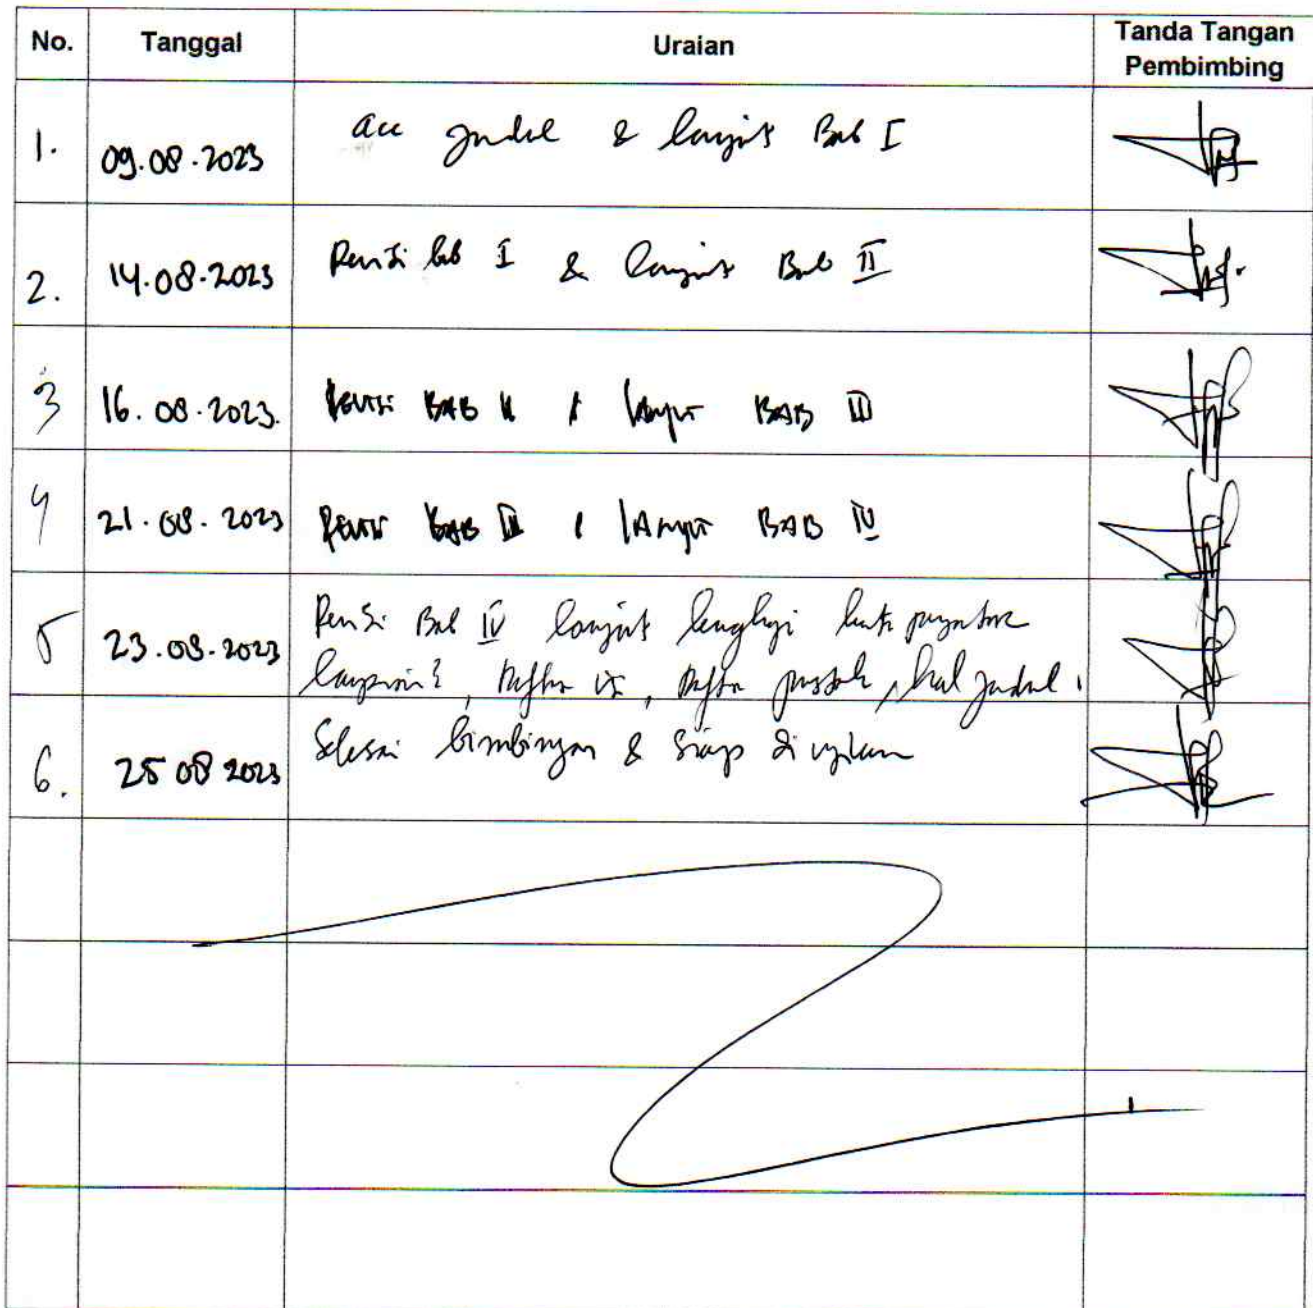 No. Tanggal Uraian Tanda Tangan Pembimbing
1. 09.08.2023 acc judul & lanjut Bab I
2. 14.08.2023 Revisi bab I & lanjut Bab II
3 16.08.2023. Revisi BAB II & lanjut BAB III
4 21.08.2023 Revisi BAB III & lanjut BAB IV
5 23.08.2023 Revisi Bab IV lanjut lengkapi kata pengantar
lampiran2, daftar isi, daftar pustak, hal judul.
6. 25 08 2023 Selesai bimbingan & siap di ujikan